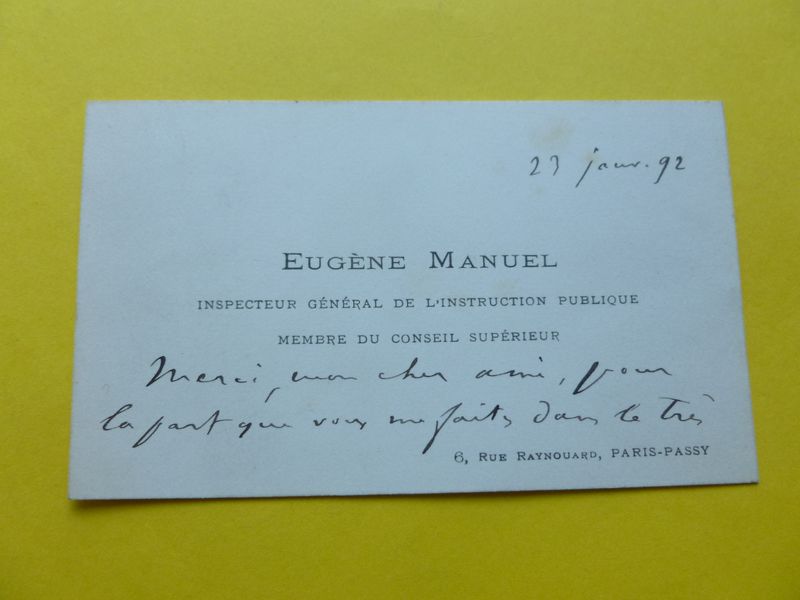 23 janv. 92
EUGÈNE MANUEL
INSPECTEUR GÉNÉRAL DE L'INSTRUCTION PUBLIQUE
MEMBRE DU CONSEIL SUPÉRIEUR
Merci, mon cher ami, pour
la part que vous me faites dans le très
6, RUE RAYNOUARD, PARIS-PASSY